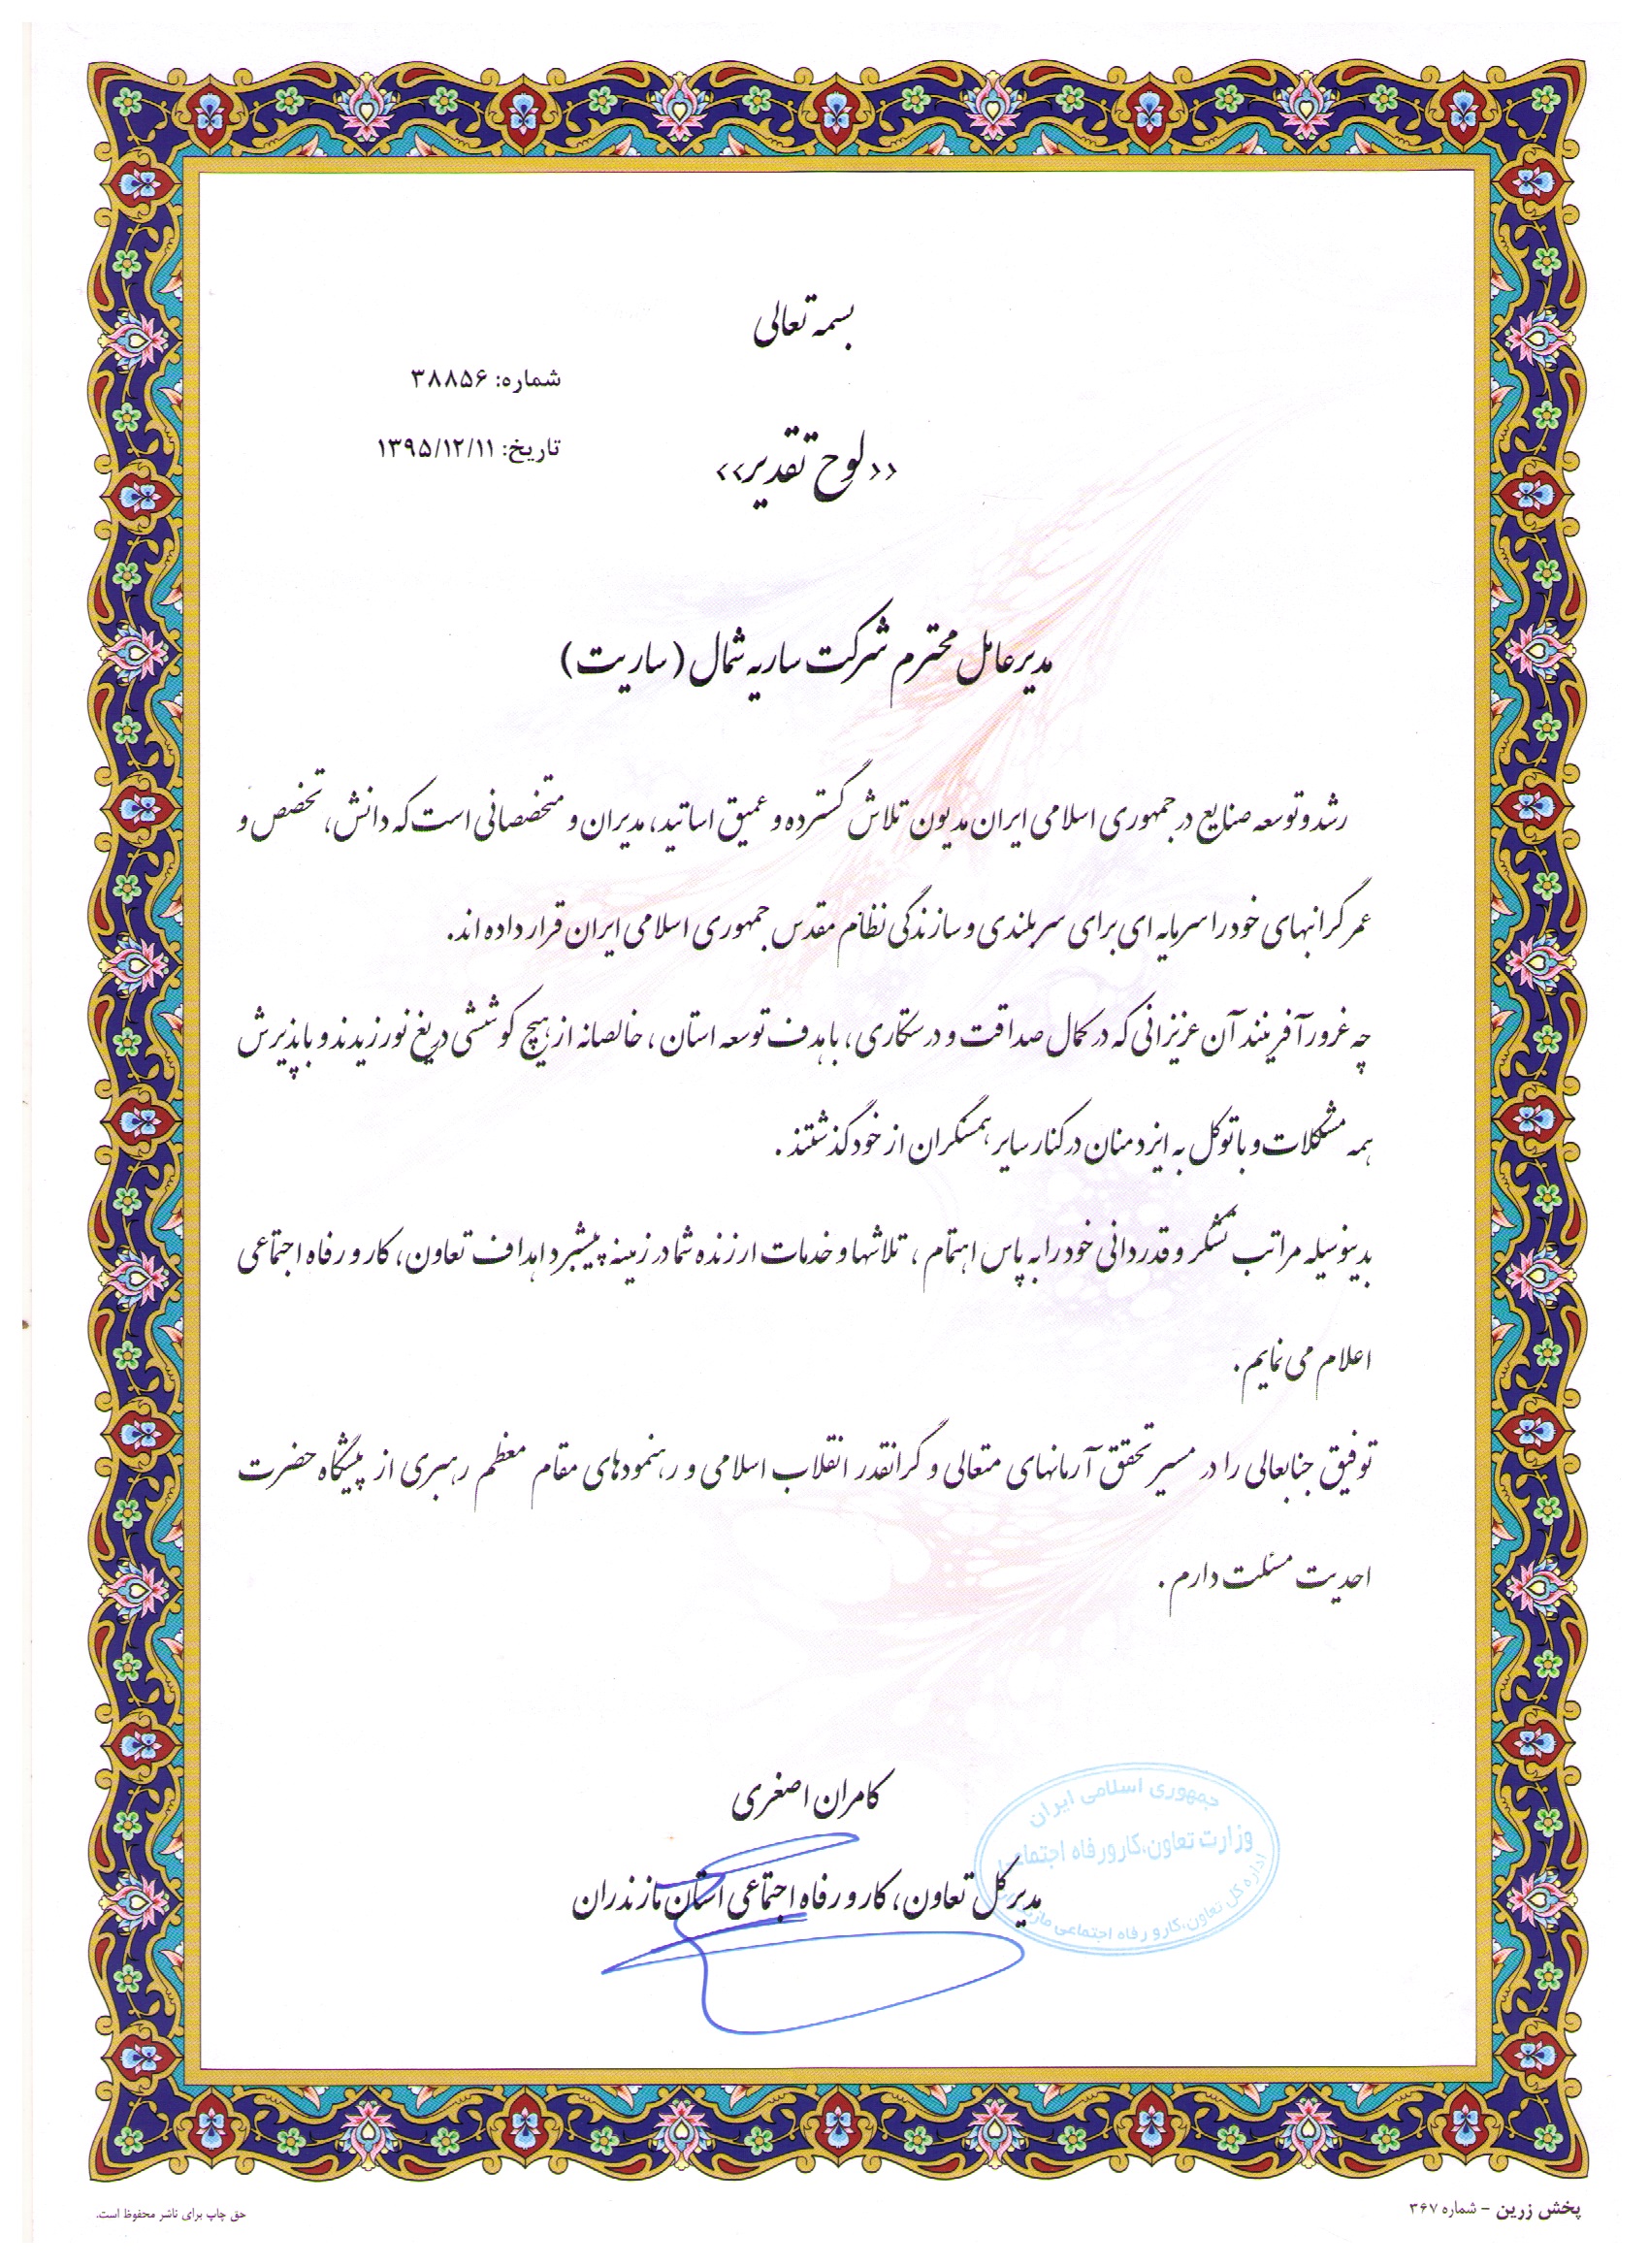 بسمه تعالی
شماره: ۳۸۸۵۶
تاریخ: ۱۳۹۵/۱۲/۱۱
<<لوح تقدیر>>
مدیرعامل محترم شرکت ساریه شمال (ساریت)
رشد و توسعه صنایع در جمهوری اسلامی ایران مدیون تلاش گسترده و عمیق اساتید، مدیران و متخصصانی است که دانش، تخصص و
عمر گرانبهای خود را سرمایه ای برای سربلندی و سازندگی نظام مقدس جمهوری اسلامی ایران قرار داده اند.
چه غرور آفرینند آن عزیزانی که در کمال صداقت و درستکاری، با هدف توسعه استان، خالصانه از هیچ کوششی دریغ نورزیدند و با پذیرش
همه مشکلات و با توکل به ایزد منان در کنار سایر همسنگران از خود گذشتند.
بدینوسیله مراتب تشکر و قدردانی خود را به پاس اهتمام، تلاشها و خدمات ارزنده شما در زمینه پیشبرد اهداف تعاون، کار و رفاه اجتماعی
اعلام می نمایم.
توفیق جنابعالی را در مسیر تحقق آرمانهای متعالی و گرانقدر انقلاب اسلامی و رهنمودهای مقام معظم رهبری از پیشگاه حضرت
احدیت مسئلت دارم.
کامران اصغری
مدیر کل تعاون، کار و رفاه اجتماعی استان مازندران
جمهوری اسلامی ایران
وزارت تعاون،کار و رفاه اجتماعی
اداره کل تعاون،کار و رفاه اجتماعی
پخش زرین - شماره ۳۶۷
حق چاپ برای ناشر محفوظ است.